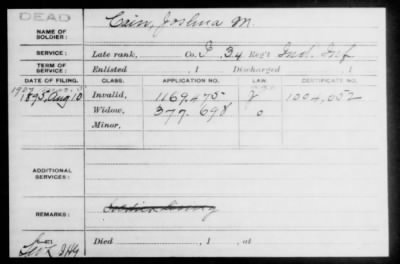 DEAD
NAME OF SOLDIER: Cain, Joshua M.
SERVICE: Late rank, Co. I, 34 Reg't Ind. Inf
TERM OF SERVICE: Enlisted , 1 Discharged , 1
DATE OF FILING. CLASS. APPLICATION NO. LAW. CERTIFICATE NO.
1895, Aug 10 Invalid, 1169,475 1004,052
Widow, 377.698 o
Minor,
ADDITIONAL SERVICES:
REMARKS:
Died , 1 , at